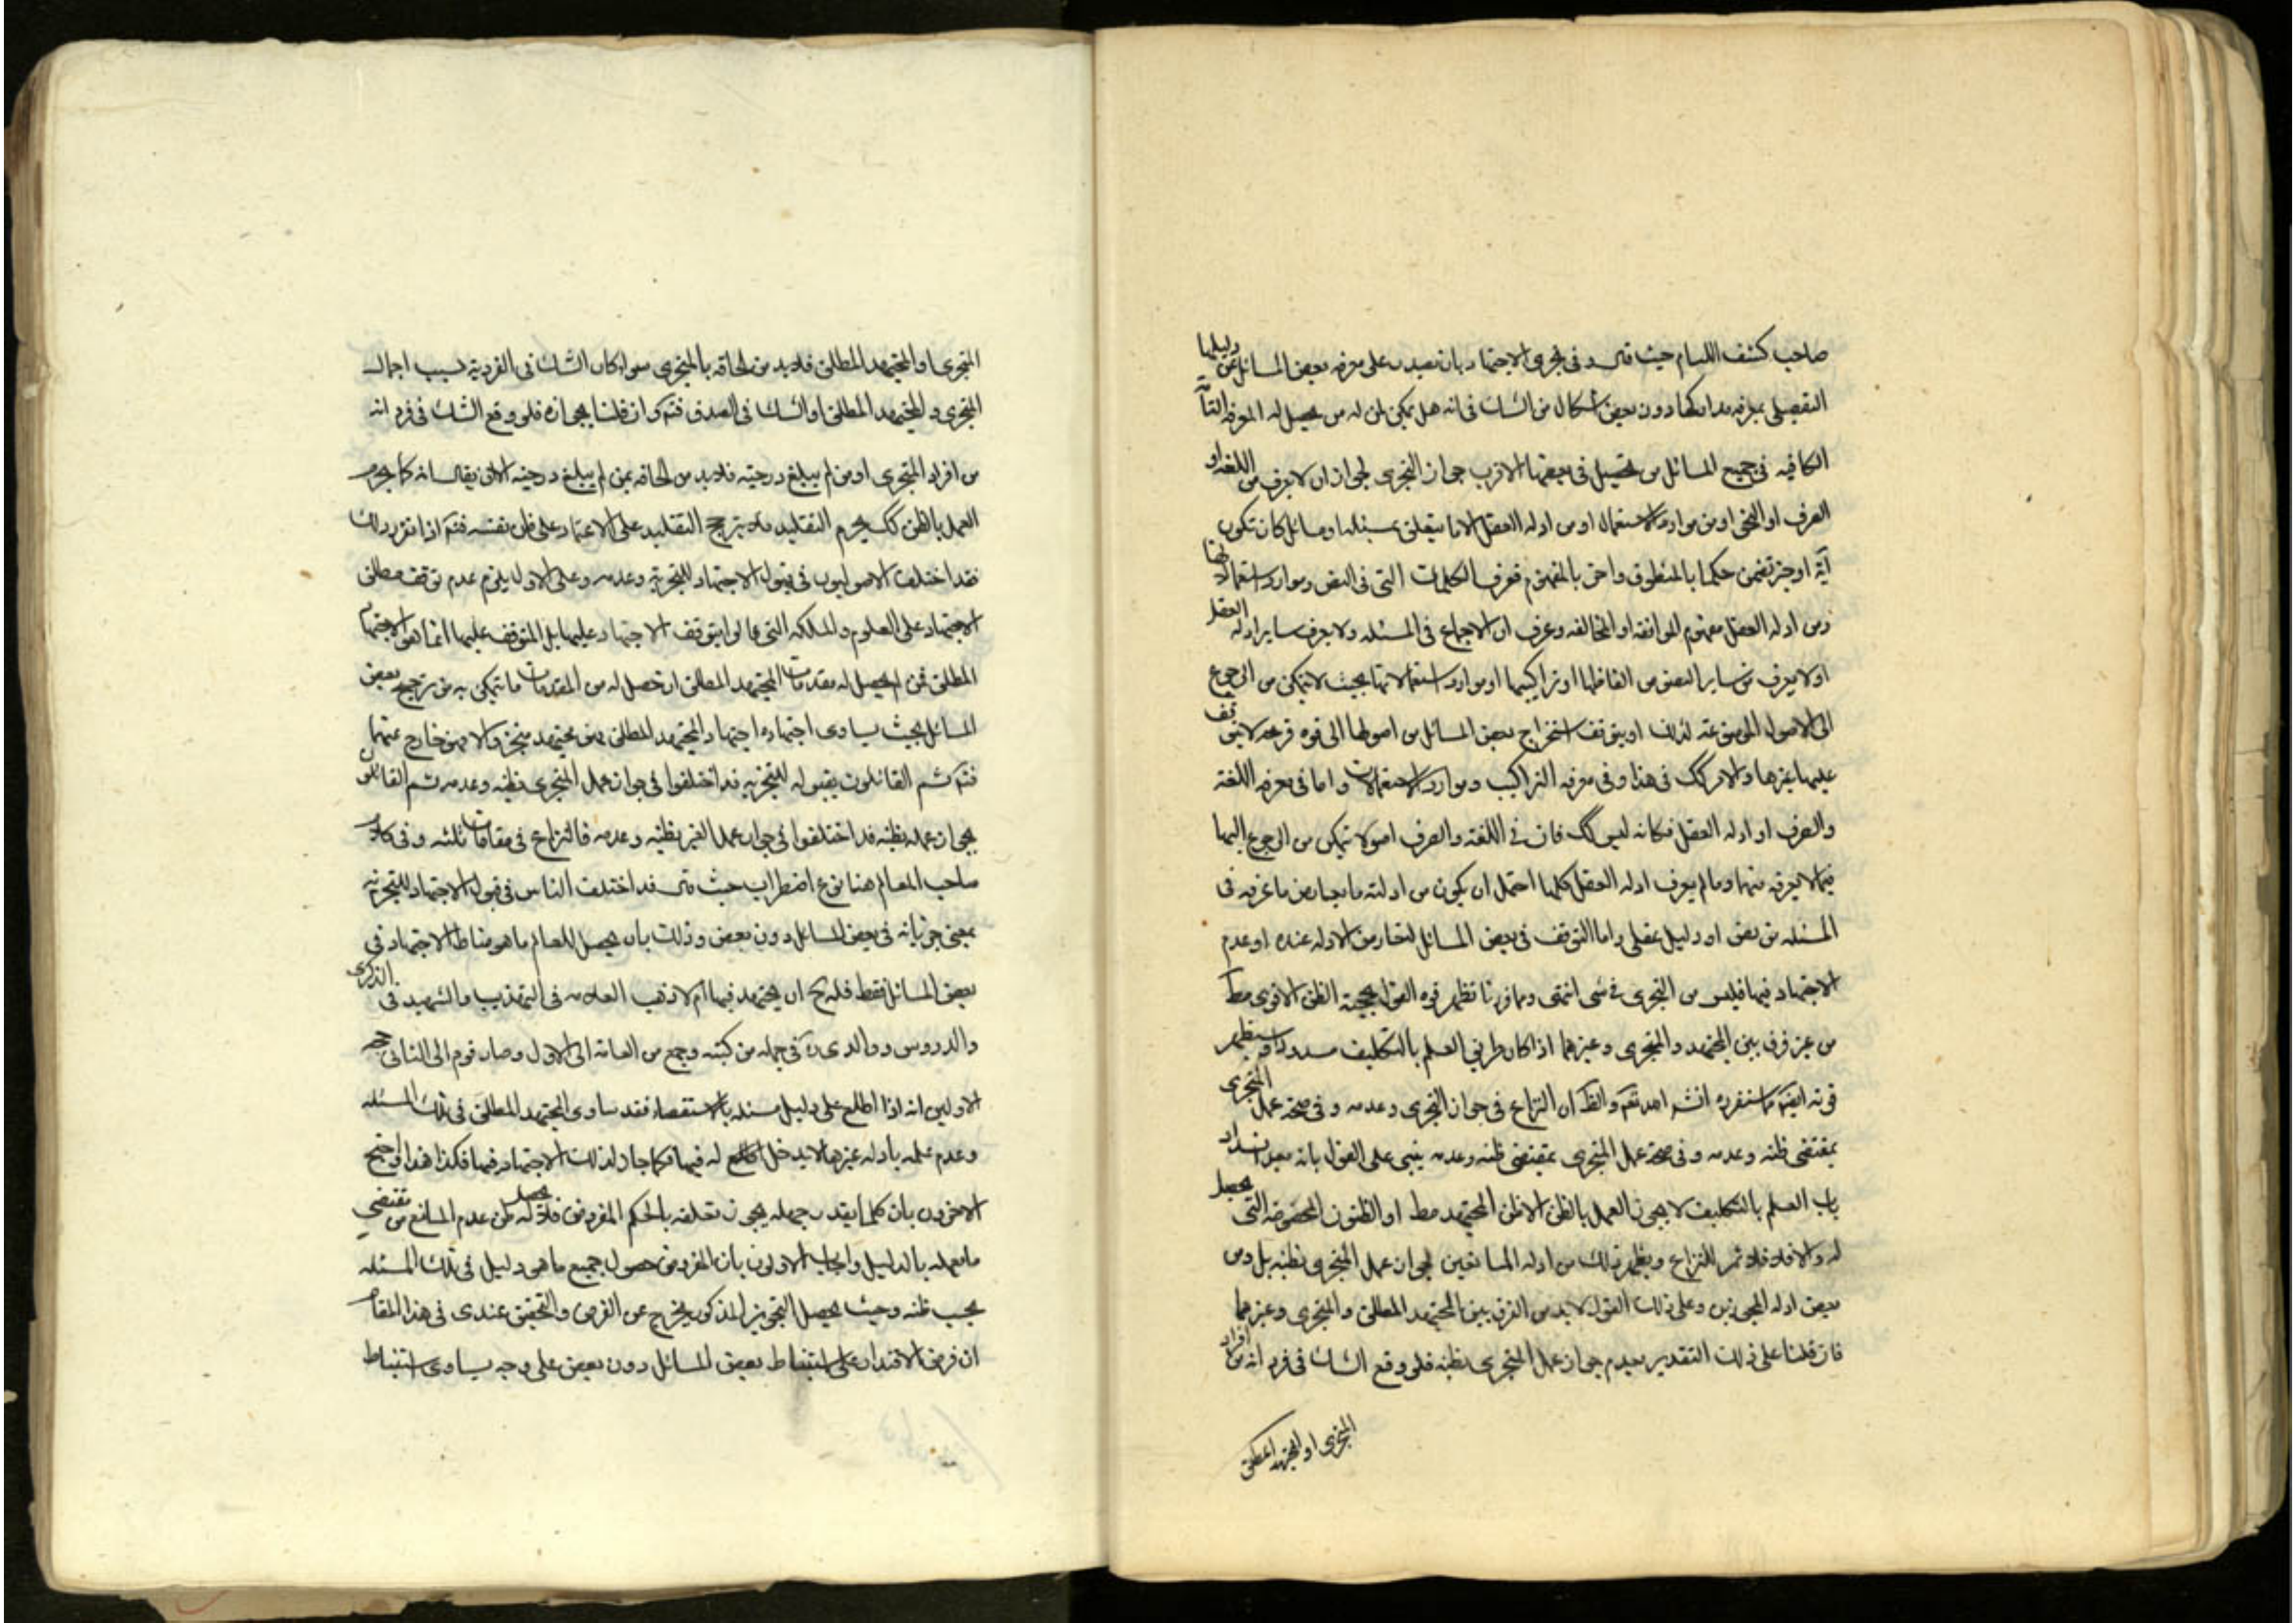 صاحب كشف اللثام حيث قال وفى تجزى الاجتهاد بان يقدر على معرفه بعض المسائل عن دليلها
التفصيلى بمعرفه مداركها دون بعض اشكال من الشك فى انه هل يمكن لمن له من يحصل له المعرفه التامة
الكافيه فى جميع المسائل من تحصيل فى بعضها الاقرب جواز التجزى لجواز ان لا يعرف من اللغه او
العرف او النحو او من موارد الاستعمال او من ادله العقل الا ما يتعلق بمسئله او مسائل كان تكون
آية او خبر تضمن حكما بالمنطوق واخر بالمفهوم فعرف الكلمات التى فى النص وموارد استعمالاتها
ومن ادله العقل مفهوم الموافقه او المخالفه وعرف ان لا اجماع فى المسئله ولا يعرف ساير ادله العقل
او لا يعرف من ساير النصوص الفاظها او تراكيبها او موارد استعمالاتها بحيث لا يتمكن من الرجوع
الى الاصول الموضوعه لذلك او يتوقف استخراج بعض المسائل من اصولها الى قوه قريحه لا يتوقف
عليها غيرها والامر كك فى هذا وفى معرفه التراكيب وموارد الاستعمالات واما فى معرفه اللغة
والعرف او ادله العقل فكانه ليس كك فان فى اللغة والعرف اصولا يتمكن من الرجوع اليها
فيما لا يعرفه منهما وما لم يعرف ادله العقل كلها احتمل ان يكون من ادلته ما يعارض ما عرفه فى
المسئله من نص او دليل عقلى واما التوقف فى بعض المسائل لتعارض الادله عنده او عدم
الاجتهاد فيها فليس من التجزى فى شى انتهى ومما قررنا تظهر قوه القول بحجية الظن الاقوى مط
من غير فرق بين المجتهد والمتجزى وغيرهما اذا كان طريق العلم بالتكليف مسدودا وستظهر
قوته ايضا مما سنقرره انشم الله تعم والظ ان النزاع فى جواز التجزى وعدمه وفى صحة عمل المتجزى
بمقتضى ظنه وعدمه وفى صحة عمل المتجزى بمقتضى ظنه وعدمه يبنى على القول بانه بعد انسداد
باب العلم بالتكليف لا يجوز العمل بالظن الا ظن المجتهد مط او الظنون المخصوصة التى يحصل
له والا فلا ثمر للنزاع ويظهر ذلك من ادله المانعين لجواز عمل المتجزى بظنه بل ومن
بعض ادله المجوزين وعلى ذلك القول لا بد من الفرق بين المجتهد المطلق والمتجزى وغيرهما
فان قلنا على ذلك التقدير بعدم جواز عمل المتجزى بظنه فلو وقع الشك فى فرد انه من افراد
المتجزى او المجتهد المطلق
المتجزى او المجتهد المطلق فلا بد من الحاقه بالمتجزى سواء كان الشك فى الفردية بسبب اجمال
المتجزى والمجتهد المطلق او الشك فى الصدق فتم وان قلنا بجوازه فلو وقع الشك فى فرد انه
من افراد المتجزى او من لم يبلغ درجته فلا بد من الحاقه بمن لم يبلغ درجته الا ان يقال انه كما يحرم
العمل بالظن كك يحرم التقليد فلا يترجح التقليد على الاعتماد على ظن نفسه فتم اذا تقرر ذلك
فقد اختلف الاصوليون فى قبول الاجتهاد للتجزية وعدمه وعلى الاول يلزم عدم توقف مطلق
الاجتهاد على العلوم والملكه التى قالوا بتوقف الاجتهاد عليها بل المتوقف عليها انما هو الاجتهاد
المطلق فمن لم يحصل له مقدمات المجتهد المطلق او حصل له من المقدمات ما يتمكن به من ترجيح بعض
المسائل بحيث يساوى اجتهاده اجتهاد المجتهد المطلق فهو مجتهد متجز والا فهو خارج عنهما
فتم ثم القائلون بقبوله للتجزيه قد اختلفوا فى جواز عمل المتجزى بظنه وعدمه ثم القائلون
بجواز عمله بظنه قد اختلفوا فى جواز عمل الغير بظنه وعدمه فالنزاع فى مقامات ثلثه وفى كلام
صاحب المعالم هنا نوع اضطراب حيث قال قد اختلف الناس فى قبول الاجتهاد للتجزيه
بمعنى جريانه فى بعض المسائل دون بعض وذلك بان يحصل للعالم ما هو مناط الاجتهاد فى
بعض المسائل فقط فله ح ان يجتهد فيها ام لا ذهب العلامه فى التهذيب والشهيد فى الذكرى
والدروس ووالدى ره فى جمله من كتبه وجمع من العامه الى الاول وصار قوم الى الثانى حجه
الاولين انه اذا اطلع على دليل مسئله بالاستقصاء فقد ساوى المجتهد المطلق فى تلك المسئله
وعدم علمه بادله غيرها لا يدخل له فيها فكما جاز لذلك الاجتهاد فيها فكذا هذا واحتج
الاخرون بان كلما يقدر جهله يجوز تعلقه بالحكم المفروض فلا يحصل له ظن عدم المانع من مقتضى
ما يعمله بالدليل واجاب الاولون بان المفروض حصول جميع ما هو دليل فى تلك المسئله
بحسب ظنه وحيث يحصل التجويز المذكور يخرج عن الفرض والتحقيق عندى فى هذا المقام
ان فرض الاقتدار على استنباط بعض المسائل دون بعض على وجه يساوى استنباط